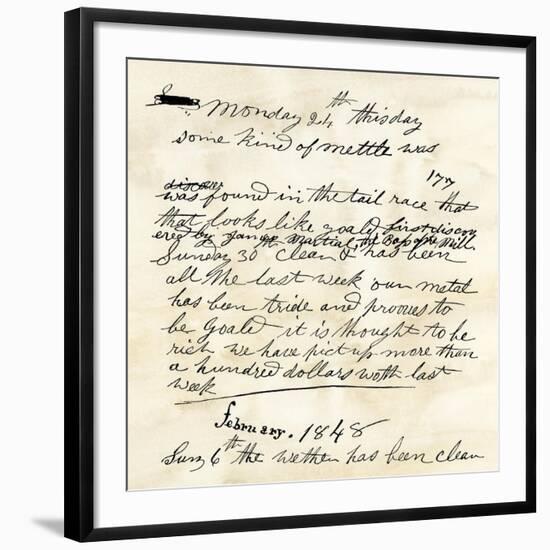 Monday 24th this day
some kind of mettle was
177
was found in the tail race that
that looks like goald first discov
ered by James Martial, the Boss of the Mill
Sunday 30th clean & has been
all the last week our metal
has been tride and prooves to
be goald it is thought to be
rich we have pict up more than
a hundred dollars woth last
week
February. 1848
Sun 6th the wether has been clean